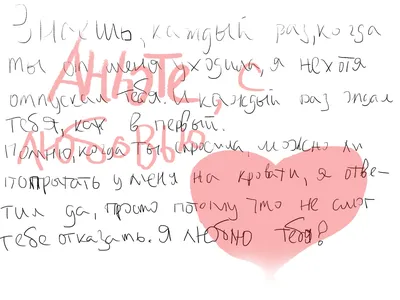 Знаешь, каждый раз, когда
ты от меня уходила, я нехотя
отпускал тебя. И каждый раз ждал
тебя, как в первый.
Помню, когда ты спросила, можно ли
у меня на кровати, я отве-
тил да, просто потому что не смог
тебе отказать. Я люблю тебя?
с
ЛЮБОВЬЮ